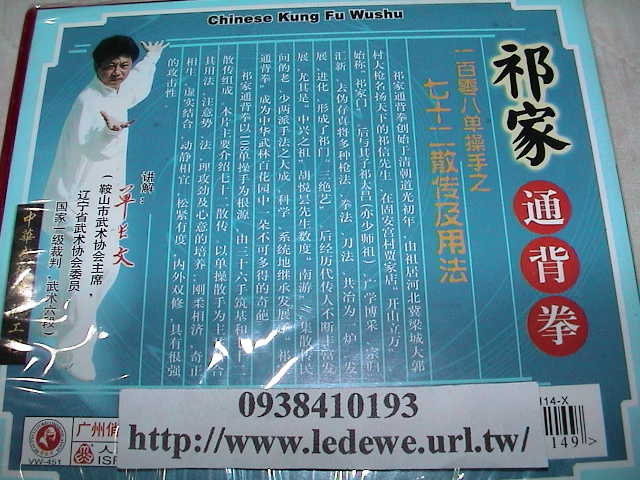 Chinese Kung Fu Wushu
祁家
通背拳
一百零八单操手之
七十二散传及用法
祁家通背拳创始于清朝道光初年，由祖居河北冀梁城大郭
村大枪名扬天下的祁信先生，在固安宫村贾家店“开山立万”，
始称“祁家门”。后与其子祁太昌（亦少师祖）广学博采，宗归
汇新，去伪存真将多种枪法、拳法、刀法，共冶为一炉，发
展、进化，形成了祁门“三绝艺”。后经历代传人不断丰富发
展，尤其是“中兴之祖”胡悦昙先生数度“南游”，集散于民
间的老、少两派手法之大成，科学、系统地继承发展了“祁家
通背拳”，成为中华武林百花园中一朵不可多得的奇葩。
祁家通背拳以108单操手为根源，由三十六手筑基和七十二
散传组成，本片主要介绍七十二散传，以单操散手为主，配合
其用法，注意势、法、理攻劲及心意的培养，刚柔相济，奇正
相生，虚实结合，动静相宜，松紧有度，内外双修，具有很强
的攻击性。
讲解：
单长文
（鞍山市武术协会主席，
辽宁省武术协会委员，
国家一级裁判，武术六段）
0938410193
http://www.ledewe.url.tw/
广州俏
ISR
VW-451
J14-X
149>